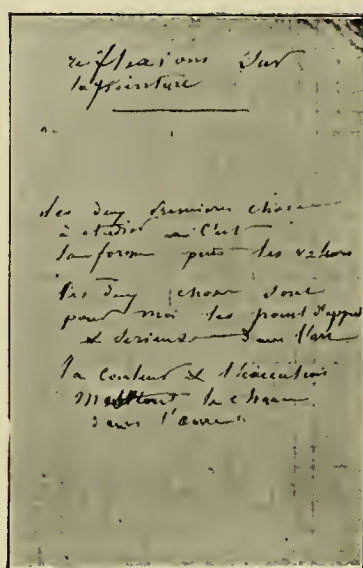 reflexions sur
la peinture
les deux premieres choses
à etudier c'est
la forme puis les valeurs
Ces deux choses sont
pour moi les points d'appui
serieux dans l'art
la couleur & l'execution
mettent le charme
dans l'œuvre